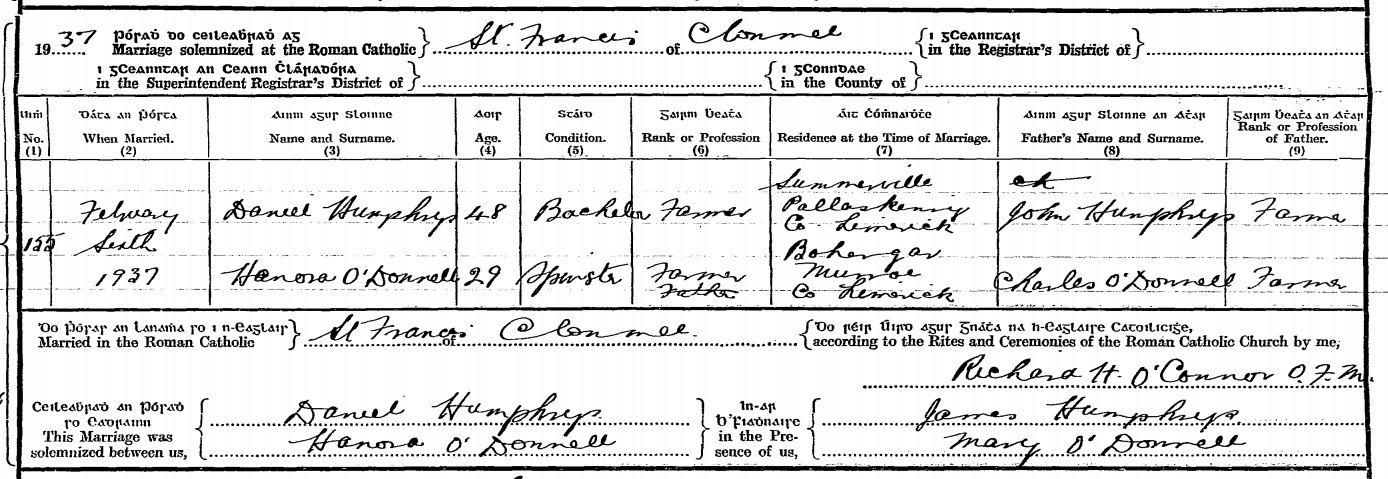 1937 Pósaḋ do ceileaḃraḋ ag Marriage solemnized at the Roman Catholic St. Francis of Clonmel i gCeanntar in the Registrar's District of
i gCeanntar an Ceann Ċláraḋóra in the Superintendent Registrar's District of i gConndae in the County of
Uimh Dáta an Pósta Ainm agus Sloinne Aois Stáid Gairm Ḃeaṫa Áit Ċómnaiḋṫe Ainm agus Sloinne an Aṫar Gairm Ḃeaṫa an Aṫar
No. When Married. Name and Surname. Age. Condition. Rank or Profession Residence at the Time of Marriage. Father's Name and Surname. Rank or Profession of Father.
(1) (2) (3) (4) (5) (6) (7) (8) (9)
Summerville
February Daniel Humphrys 48 Bachelor Farmer Pallaskenry John Humphrys Farmer
Co Limerick
155 Sixth Bohergar
1937 Hanora O'Donnell 29 Spinster Farmer Munroe Charles O'Donnell Farmer
Father Co Limerick
Do Pósaḋ an Lanaṁa so i n-Eaglais Married in the Roman Catholic St Francis of Clonmel. Do réir agus Gnáṫa na h-Eaglaise Catoilicíġe, according to the Rites and Ceremonies of the Roman Catholic Church by me,
Richard H. O'Connor O.F.M.
Ceileaḃraḋ an Pósaḋ so Eadrainn This Marriage was solemnized between us, Daniel Humphrys. In-ár ḃFiaḋnaise in the Presence of us, James Humphrys.
Hanora O'Donnell Mary O'Donnell